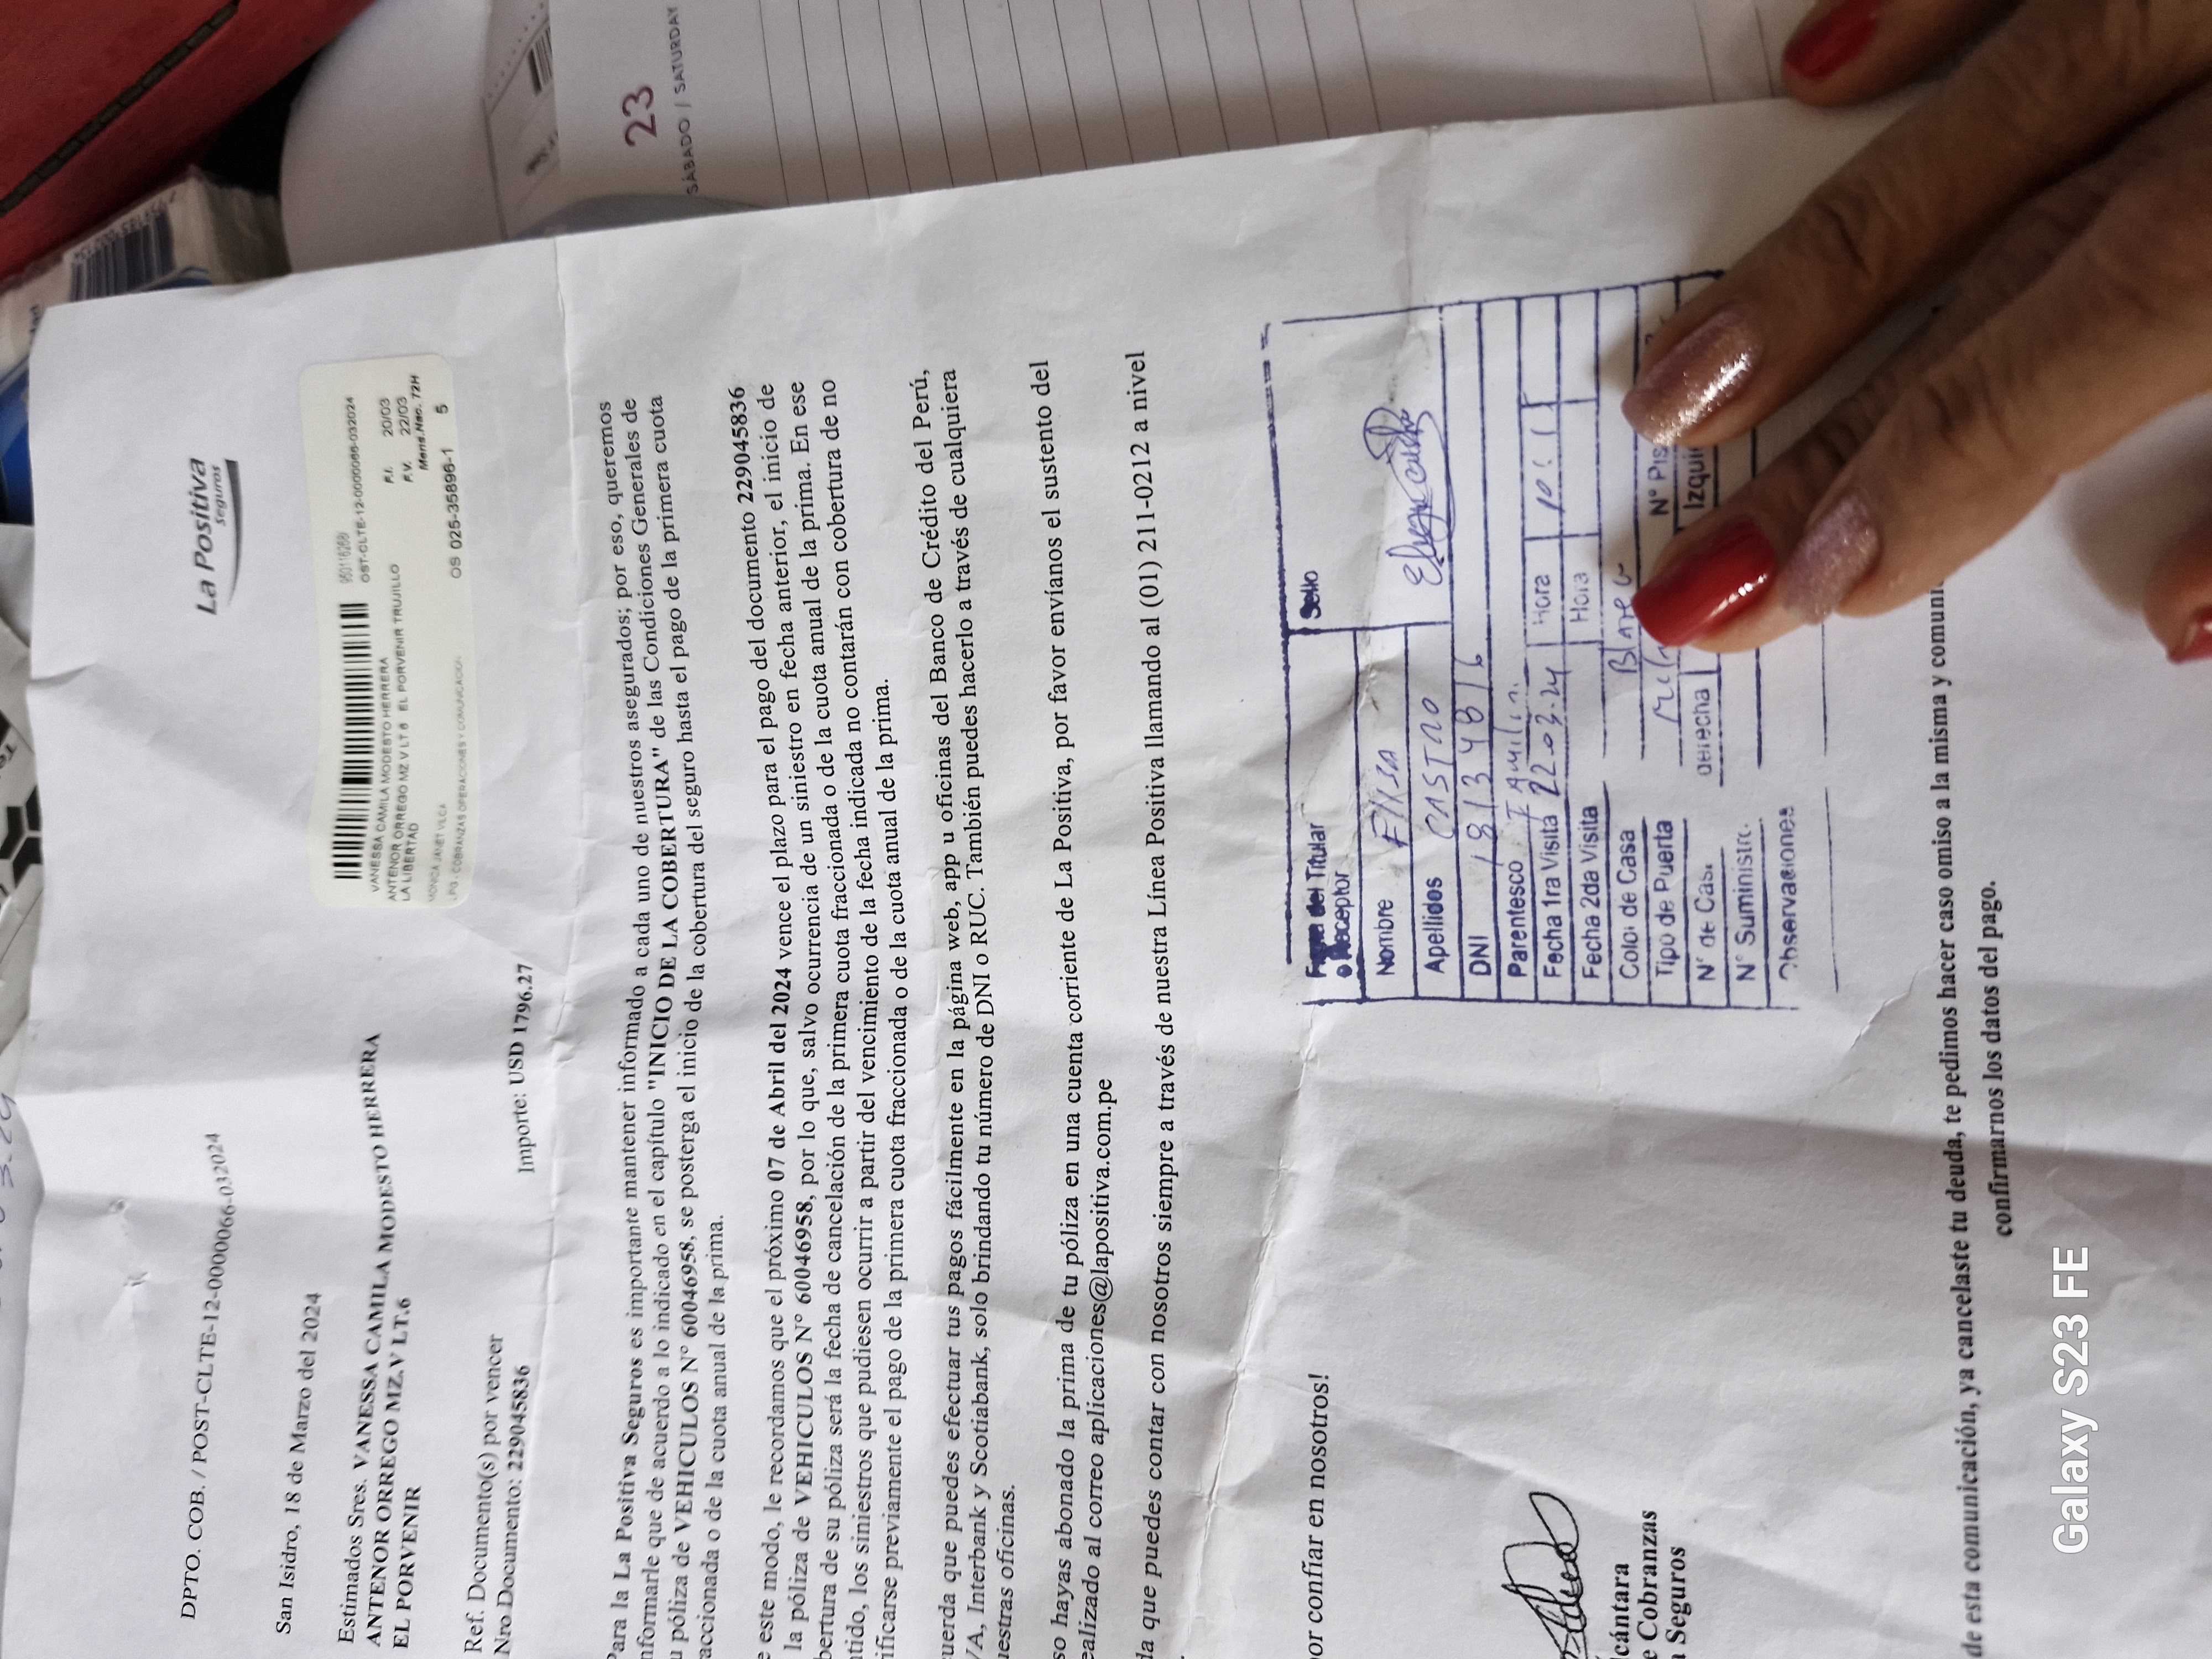 La Positiva
seguros
DPTO. COB. / POST-CLTE-12-0000066-032024
OST-CLTE-12-0000066-032024
VANESSA CAMILA MODESTO HERRERA
ANTENOR ORREGO MZ V LT 6 EL PORVENIR TRUJILLO
LA LIBERTAD
F.I. 20/03
F.V. 22/03
Mens.Nac. 72H
MONICA JANET VILCA
LPG - COBRANZAS OPERACIONES Y COMUNICACION
OS 025-35896-1 5
San Isidro, 18 de Marzo del 2024
Estimados Sres. VANESSA CAMILA MODESTO HERRERA
ANTENOR ORREGO MZ.V LT.6
EL PORVENIR
Ref. Documento(s) por vencer
Nro Documento: 229045836 Importe: USD 1796.27
Para la La Positiva Seguros es importante mantener informado a cada uno de nuestros asegurados; por eso, queremos
nformarle que de acuerdo a lo indicado en el capítulo "INICIO DE LA COBERTURA" de las Condiciones Generales de
u póliza de VEHICULOS N° 60046958, se posterga el inicio de la cobertura del seguro hasta el pago de la primera cuota
raccionada o de la cuota anual de la prima.
e este modo, le recordamos que el próximo 07 de Abril del 2024 vence el plazo para el pago del documento 229045836
la póliza de VEHICULOS N° 60046958, por lo que, salvo ocurrencia de un siniestro en fecha anterior, el inicio de
bertura de su póliza será la fecha de cancelación de la primera cuota fraccionada o de la cuota anual de la prima. En ese
ntido, los siniestros que pudiesen ocurrir a partir del vencimiento de la fecha indicada no contarán con cobertura de no
rificarse previamente el pago de la primera cuota fraccionada o de la cuota anual de la prima.
uerda que puedes efectuar tus pagos fácilmente en la página web, app u oficinas del Banco de Crédito del Perú,
VA, Interbank y Scotiabank, solo brindando tu número de DNI o RUC. También puedes hacerlo a través de cualquiera
uestras oficinas.
so hayas abonado la prima de tu póliza en una cuenta corriente de La Positiva, por favor envíanos el sustento del
ealizado al correo aplicaciones@lapositiva.com.pe
da que puedes contar con nosotros siempre a través de nuestra Línea Positiva llamando al (01) 211-0212 a nivel
or confiar en nosotros!
cántara
e Cobranzas
a Seguros
Firma del Titular
o Receptor
Sello
Nombre Elisa
Apellidos CASTRO
DNI
Parentesco FAMILIA
Fecha 1ra Visita 22-03-24 Hora
Fecha 2da Visita Hora
Color de Casa
Tipo de Puerta
N° Pis
N° de Casa derecha Izquie
N° Suministro
Observaciones
de esta comunicación, ya cancelaste tu deuda, te pedimos hacer caso omiso a la misma y comuni
confirmarnos los datos del pago.
23
SÁBADO / SATURDAY
Galaxy S23 FE